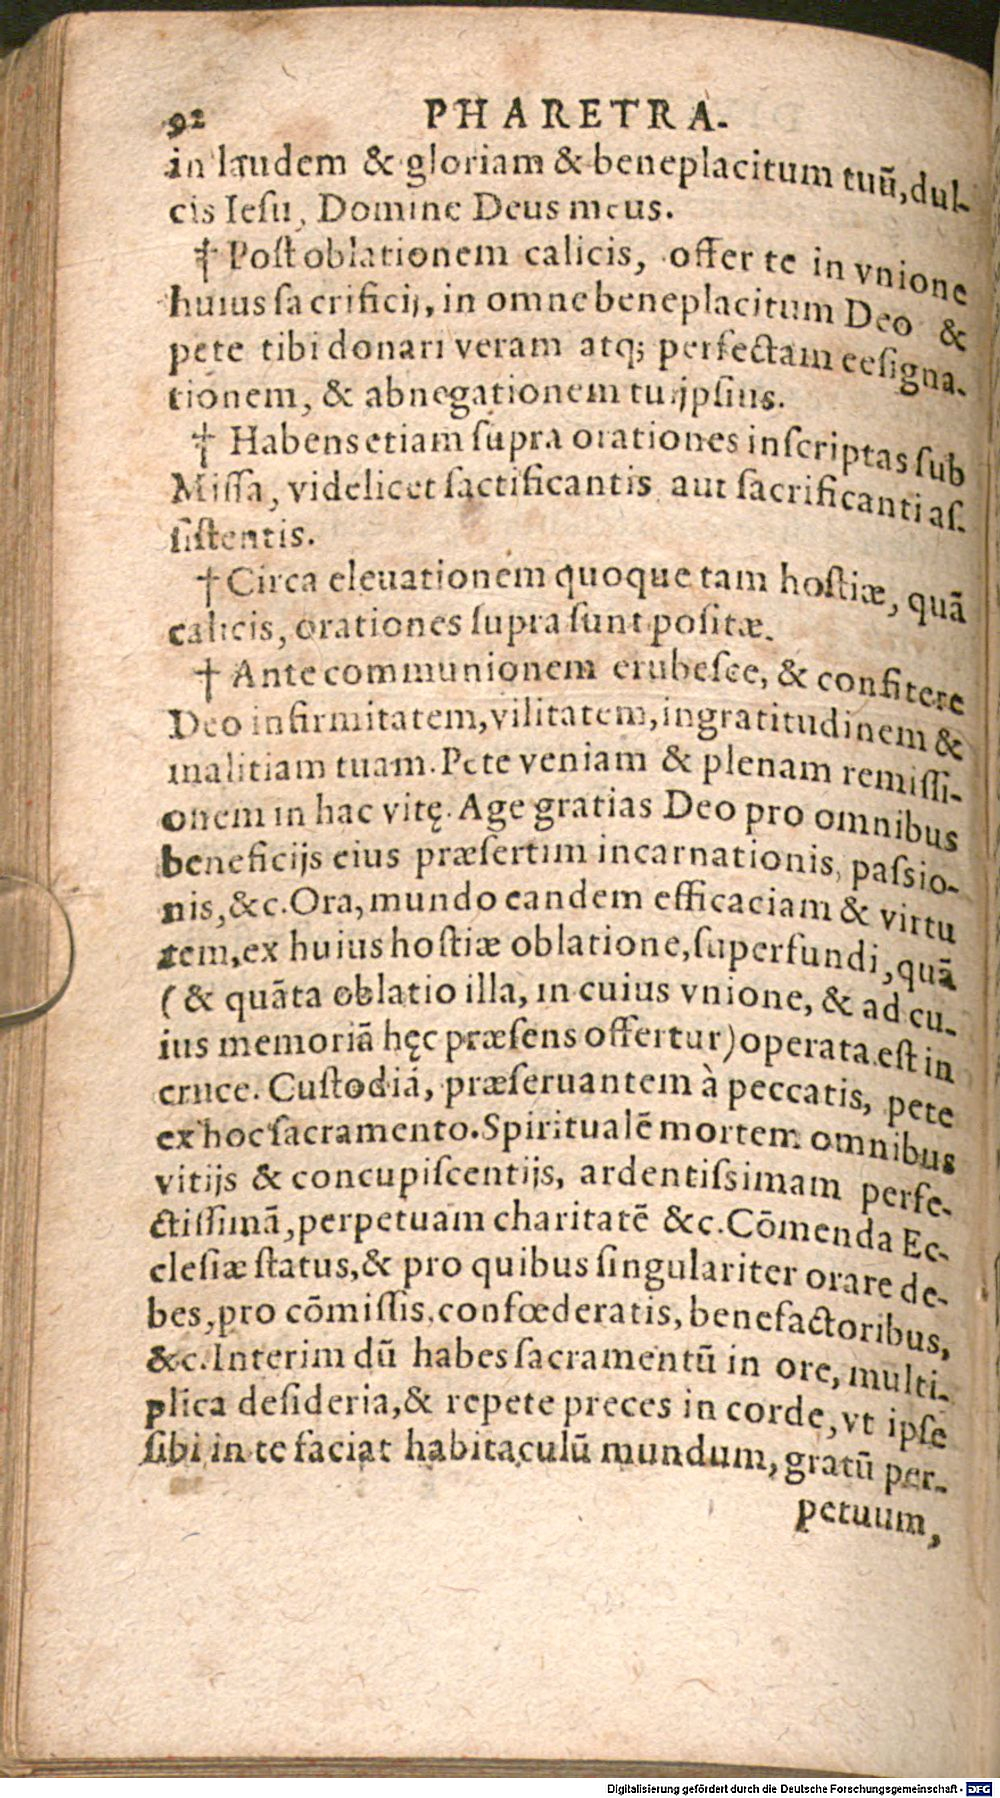 92 PHARETRA.
in laudem & gloriam & beneplacitum tuũ, dul-
cis Iesu, Domine Deus meus.
† Post oblationem calicis, offer te in vnione
huius sacrificij, in omne beneplacitum Deo &
pete tibi donari veram atq; perfectam eesigna-
tionem, & abnegationem tui jpsius.
† Habens etiam supra orationes inscriptas sub
Missa, videlicet sactificantis aut sacrificanti as-
sistentis.
† Circa eleuationem quoque tam hostiæ, quã
calicis, orationes supra sunt positæ.
† Ante communionem erubesce, & confitere
Deo infirmitatem, vilitatem, ingratitudinem &
malitiam tuam. Pete veniam & plenam remissi-
onem in hac vitę. Age gratias Deo pro omnibus
beneficijs eius præsertim incarnationis, passio-
nis, &c. Ora, mundo eandem efficaciam & virtu
tem, ex huius hostiæ oblatione, superfundi, quã
(& quãta oblatio illa, in cuius vnione, & ad cu-
ius memoriã hęc præsens offertur) operata est in
cruce. Custodiã, præseruantem à peccatis, pete
ex hoc sacramento. Spiritualẽ mortem omnibus
vitijs & concupiscentijs, ardentissimam perfe-
ctissimã, perpetuam charitatẽ &c. Cõmenda Ec-
clesiæ status, & pro quibus singulariter orare de-
bes, pro cõmissis, confœderatis, benefactoribus,
&c. Interim dũ habes sacramentũ in ore, multi-
plica desideria, & repete preces in corde, vt ipse
sibi in te faciat habitaculũ mundum, gratũ per-
petuum,
Digitalisierung gefördert durch die Deutsche Forschungsgemeinschaft - DFG